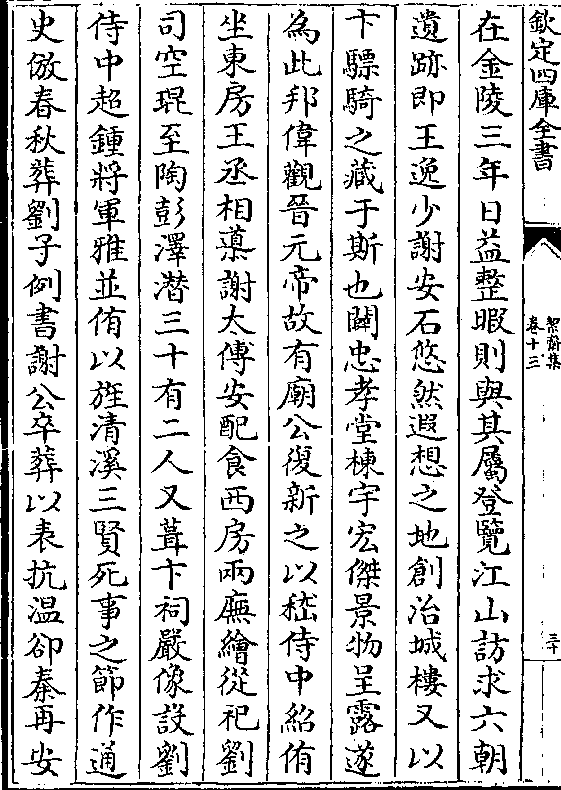 欽定四庫全書
絜齋集
卷十三
三十
在金陵三年日益整暇則與其屬登覽江山訪求六朝
遺跡即王逸少謝安石悠然遐想之地創冶城樓又以
卞驃騎之藏于斯也闢忠孝堂棟宇宏傑景物呈露遂
為此邦偉觀晉元帝故有廟公復新之以嵇侍中紹侑
坐東房王丞相蕖謝太傅安配食西房兩廡繪從祀劉
司空琨至陶彭澤潛三十有二人又葺卞祠嚴像設劉
侍中超鍾將軍雅並侑以旌清溪三賢死事之節作通
史倣春秋葬劉子例書謝公卒葬以表抗温卻秦再安